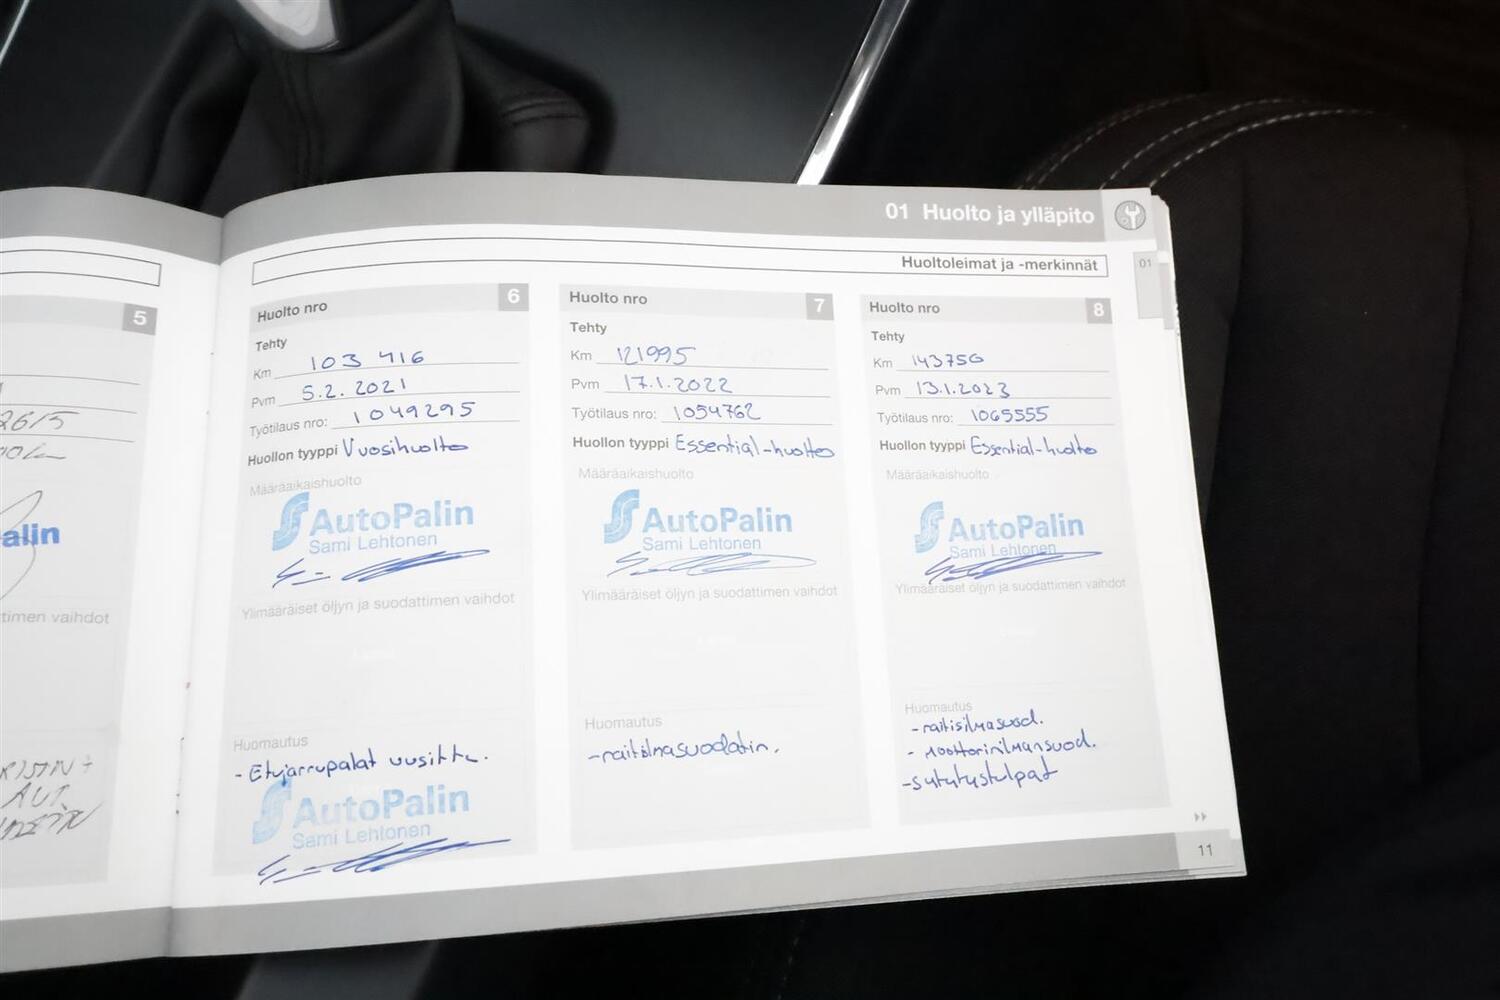 01 Huolto ja ylläpito
Huoltoleimat ja -merkinnät
01
5
2615
alin
ttimen vaihdot
Huolto nro 6
Tehty
Km 103 416
Pvm 5.2.2021
Työtilaus nro: 1049295
Huollon tyyppi Vuosihuolto
Määräaikaishuolto
AutoPalin
Sami Lehtonen
Ylimääräiset öljyn ja suodattimen vaihdot
Huomautus
- Etujarrupalat uusittu.
AutoPalin
Sami Lehtonen
Huolto nro 7
Tehty
Km 121995
Pvm 17.1.2022
Työtilaus nro: 1054762
Huollon tyyppi Essential-huolto
Määräaikaishuolto
AutoPalin
Sami Lehtonen
Ylimääräiset öljyn ja suodattimen vaihdot
Huomautus
- raitisilmasuodatin.
Huolto nro 8
Tehty
Km 143750
Pvm 13.1.2023
Työtilaus nro: 1065555
Huollon tyyppi Essential-huolto
Määräaikaishuolto
AutoPalin
Sami Lehtonen
Ylimääräiset öljyn ja suodattimen vaihdot
Huomautus
- raitisilmasuod.
- moottorinilmansuod.
- sytytystulpat
11